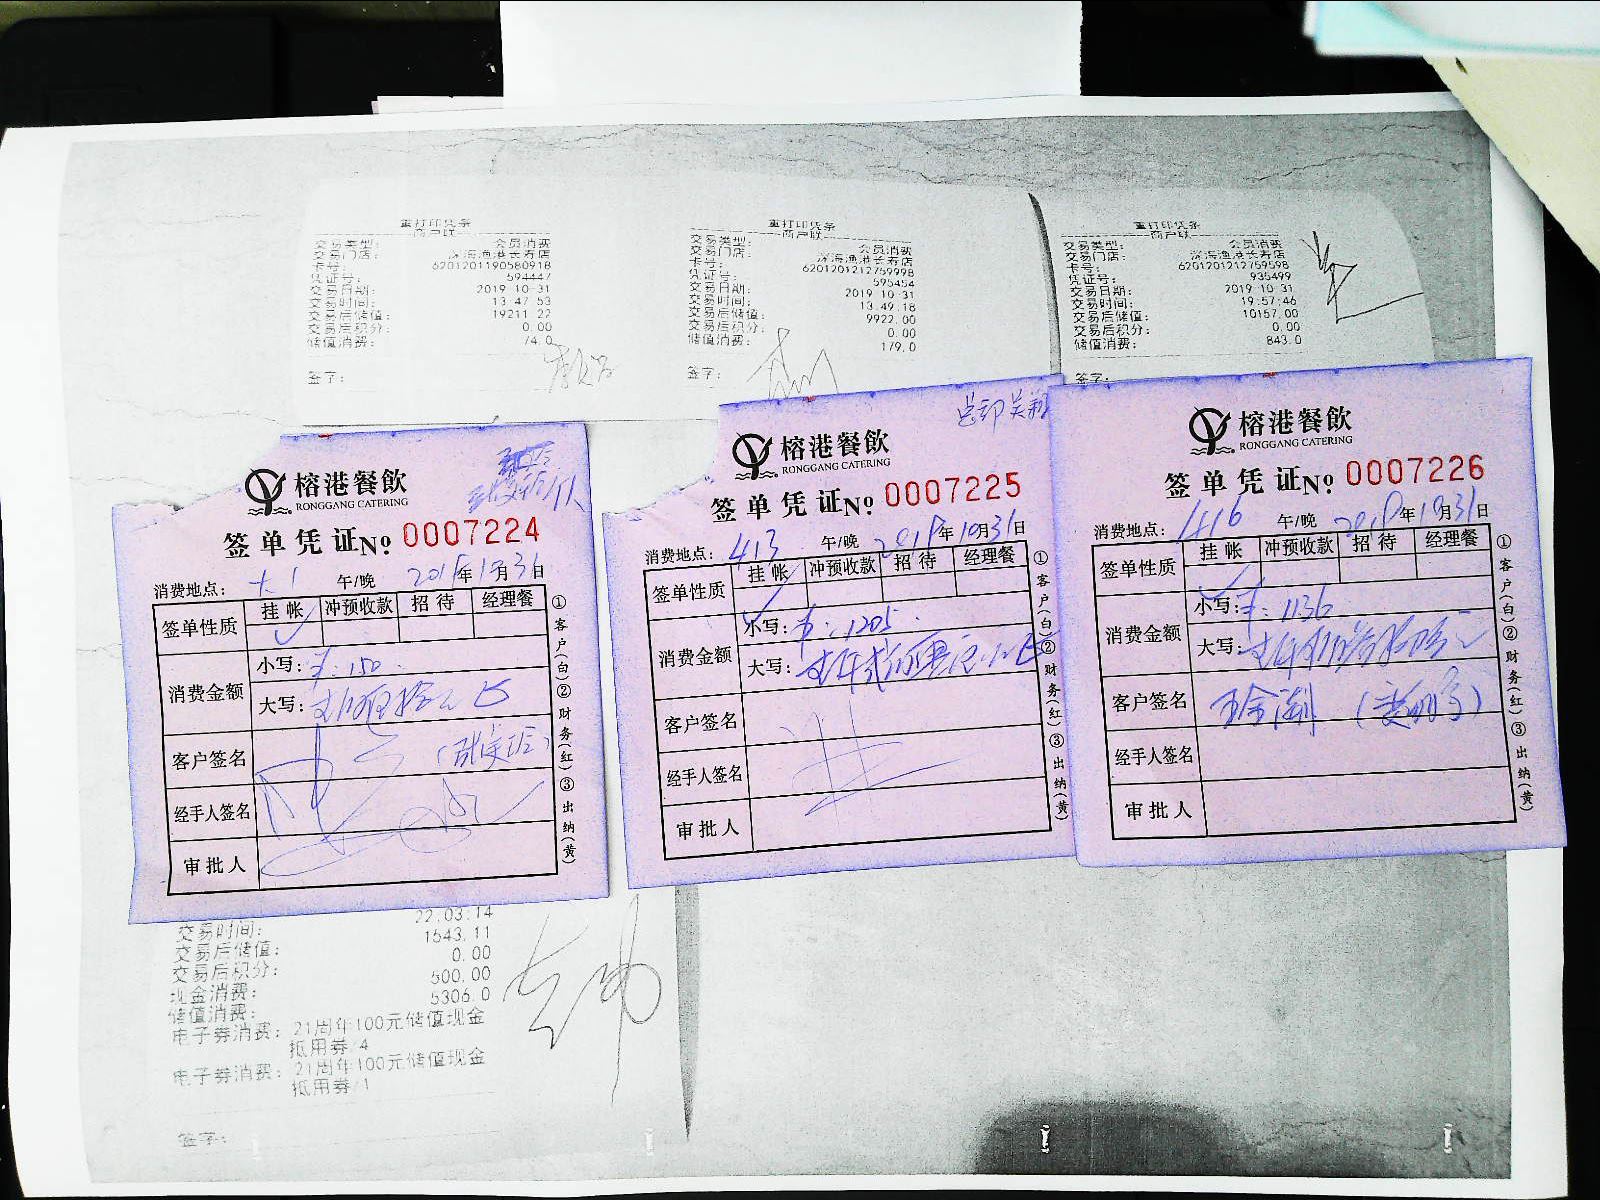 重打印凭条
商户联
交易类型： 会员消费
交易门店： 深海渔港长寿店
卡号： 6201201190580918
凭证号： 594447
交易日期： 2019-10-31
交易时间： 13:47:53
交易后储值： 19211.22
交易后积分： 0.00
储值消费： 74.0
签字：
重打印凭条
商户联
交易类型： 会员消费
交易门店： 深海渔港长寿店
卡号： 6201201212759998
凭证号： 595454
交易日期： 2019-10-31
交易时间： 13:49:18
交易后储值： 9922.00
交易后积分： 0.00
储值消费： 179.0
签字：
重打印凭条
商户联
交易类型： 会员消费
交易门店： 深海渔港长寿店
卡号： 6201201212759598
凭证号： 935499
交易日期： 2019-10-31
交易时间： 19:57:46
交易后储值： 10157.00
交易后积分： 0.00
储值消费： 843.0
签字：
榕港餐飲
RONGGANG CATERING
签单凭证No 0007224
消费地点： 大1 午/晚 年 月31日
签单性质 挂帐 冲预收款 招待 经理餐
消费金额 小写：¥：150
大写：
客户签名
经手人签名
审批人
①客户(白)②财务(红)③出纳(黄)
榕港餐飲
RONGGANG CATERING
签单凭证No 0007225
消费地点： 413 午/晚 2019年10月31日
签单性质 挂帐 冲预收款 招待 经理餐
消费金额 小写：¥：1205
大写：
客户签名
经手人签名
审批人
①客户(白)②财务(红)③出纳(黄)
榕港餐飲
RONGGANG CATERING
签单凭证No 0007226
消费地点： 1416 午/晚 2019年10月31日
签单性质 挂帐 冲预收款 招待 经理餐
消费金额 小写：¥：1136
大写：
客户签名
经手人签名
审批人
①客户(白)②财务(红)③出纳(黄)
22:03:14
交易时间： 1543.11
交易后储值： 0.00
交易后积分： 500.00
现金消费： 5306.0
储值消费：
电子券消费：21周年100元储值现金
抵用券/4
电子券消费：21周年100元储值现金
抵用券/1
签字：